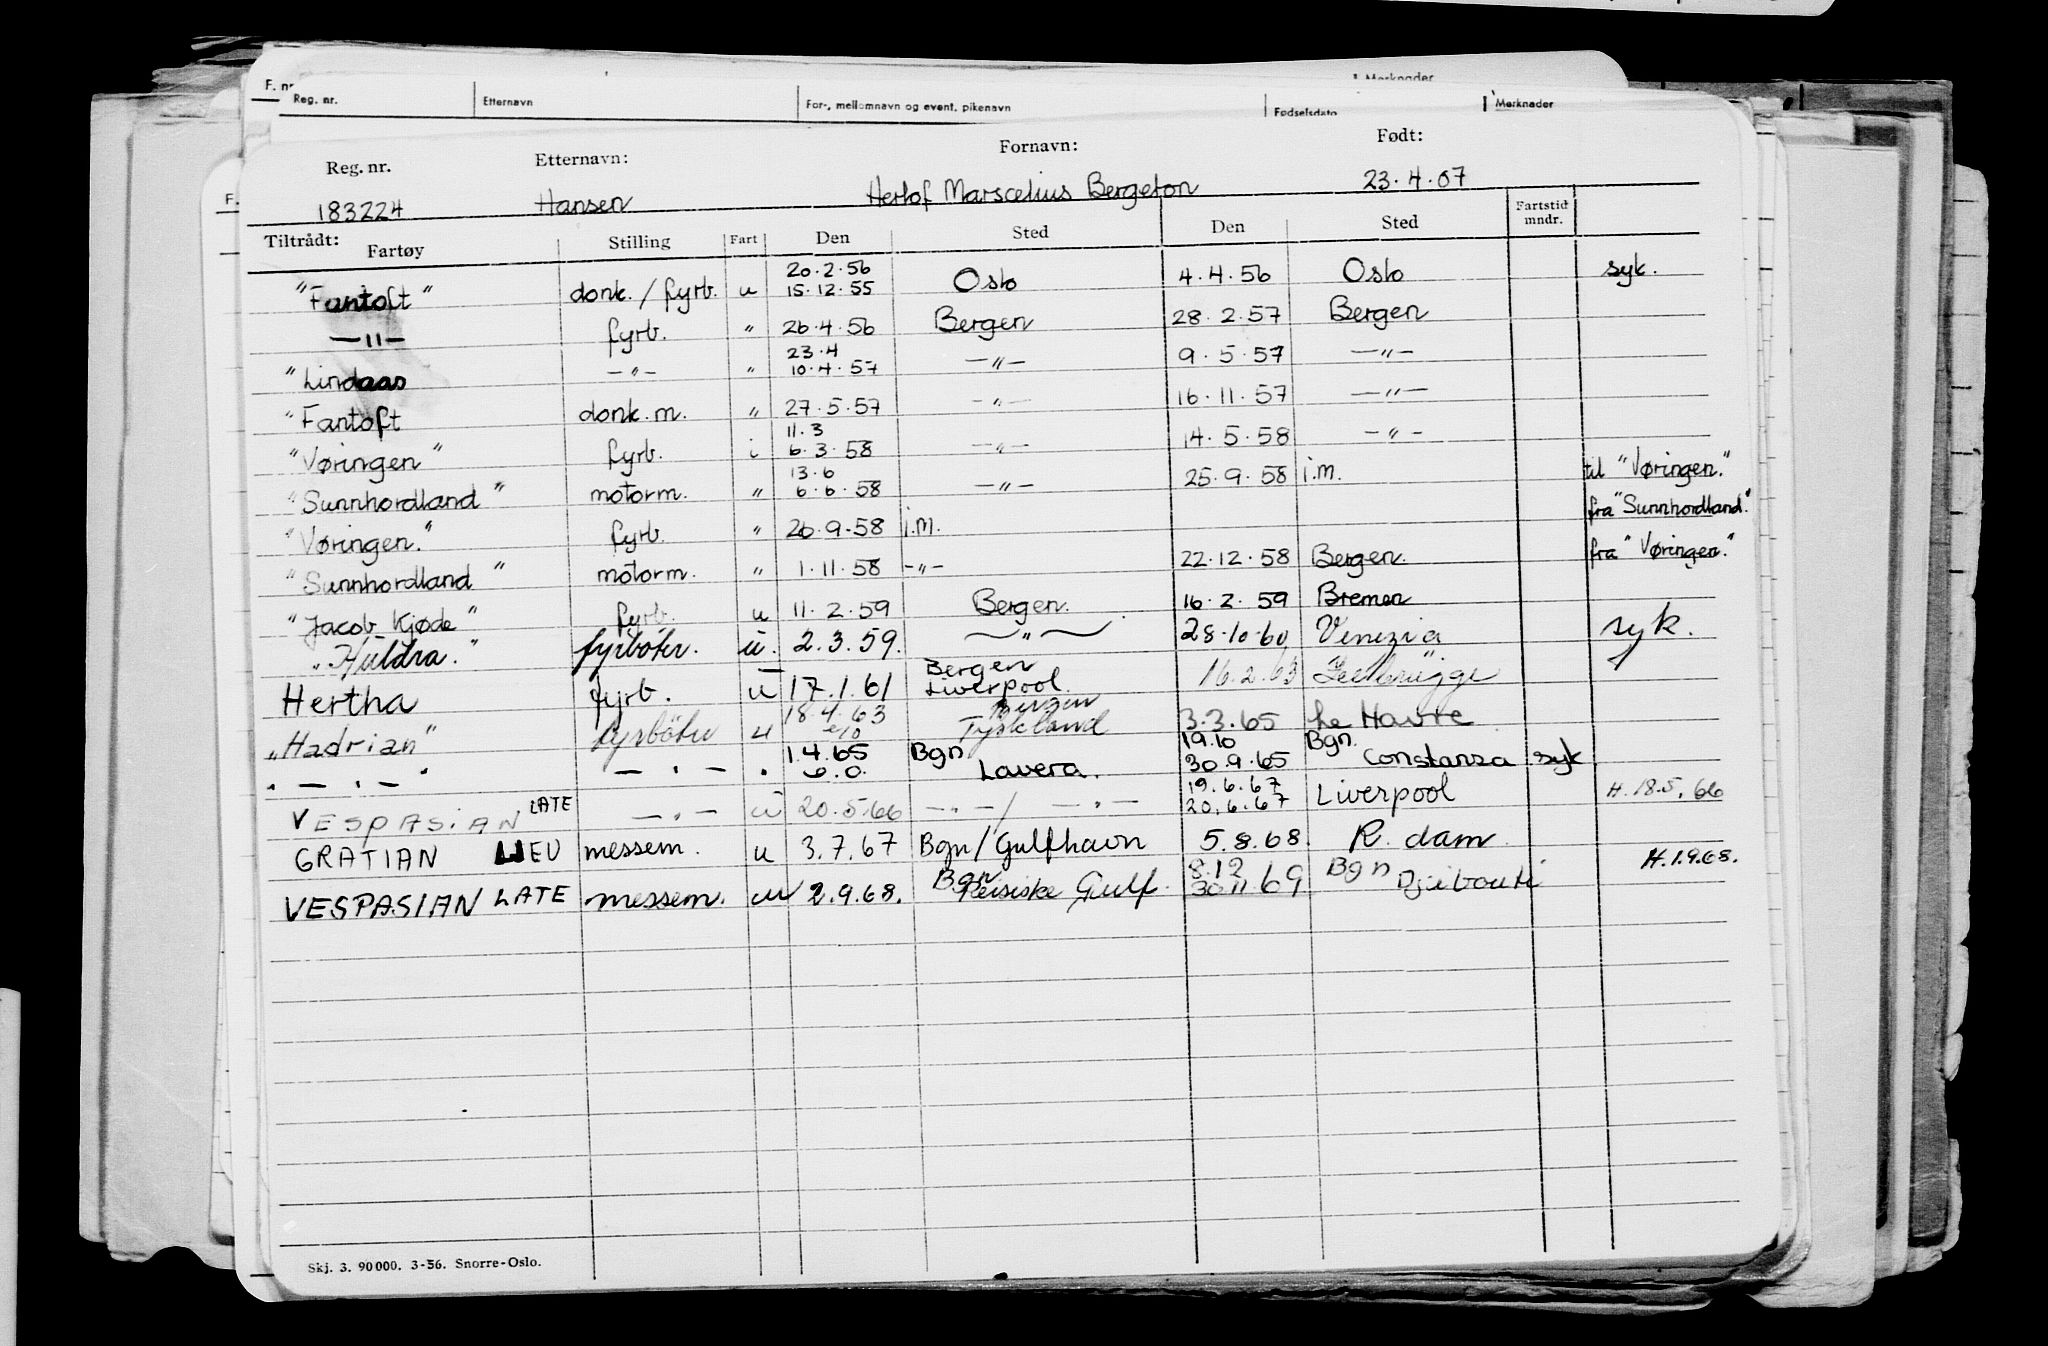 F. nr
Merknader
Reg. nr. Etternavn For-, mellomnavn og event. pikenavn Fødselsdato Merknader
Reg. nr. Etternavn: Fornavn: Født:
183224 Hansen Herlof Marscelius Bergeton 23.4.07
Tiltrådt: Fartøy Stilling Fart Den Sted Den Sted Fartstid mndr.
20.2.56
"Fantoft" donk./fyrb. u 15.12.55 Oslo 4.4.56 Oslo syk.
—"— fyrb. " 26.4.56 Bergen 28.2.57 Bergen
23.4
"Lindaas —"— " 10.4.57 —"— 9.5.57 —"—
"Fantoft donk.m. " 27.5.57 —"— 16.11.57 —"—
11.3
"Vøringen" fyrb. i 6.3.58 —"— 14.5.58 —"—
13.6
"Sunnhordland" motorm. " 6.6.58 —"— 25.9.58 i.m. til "Vøringen."
"Vøringen." fyrb. " 26.9.58 i.m. fra "Sunnhordland."
"Sunnhordland" motorm. " 1.11.58 —"— 22.12.58 Bergen. fra "Vøringen."
"Jacob Kjøde" fyrb. u 11.2.59 Bergen. 16.2.59 Bremen
"Huldra." fyrbøter. u. 2.3.59. —"— 28.10.60 Venezia syk.
Bergen
Hertha fyrb. u 17.1.61 Liverpool. 16.2.63 Zeebrügge
18.4.63 Bergen
"Hadrian" fyrbøter u Tyskland 3.3.65 Le Havre
1.4.65 Bgn 19.10 Bgn.
" — " — " — " — . 6.0. Lavera. 30.9.65 Constanza syk
19.6.67
VESPASIAN LATE —"— u 20.5.66 —"—/—"— 20.6.67 Liverpool H. 18.5.66
GRATIAN LIEU messem. u 3.7.67 Bgn/Gulfhavn 5.8.68. R.dam
Bgn 8.12 Bgn
VESPASIAN LATE messem. u 2.9.68. Persiske Gulf. 30.11.69 Djibouti H.1.9.68.
Skj. 3. 90000. 3-56. Snorre-Oslo.